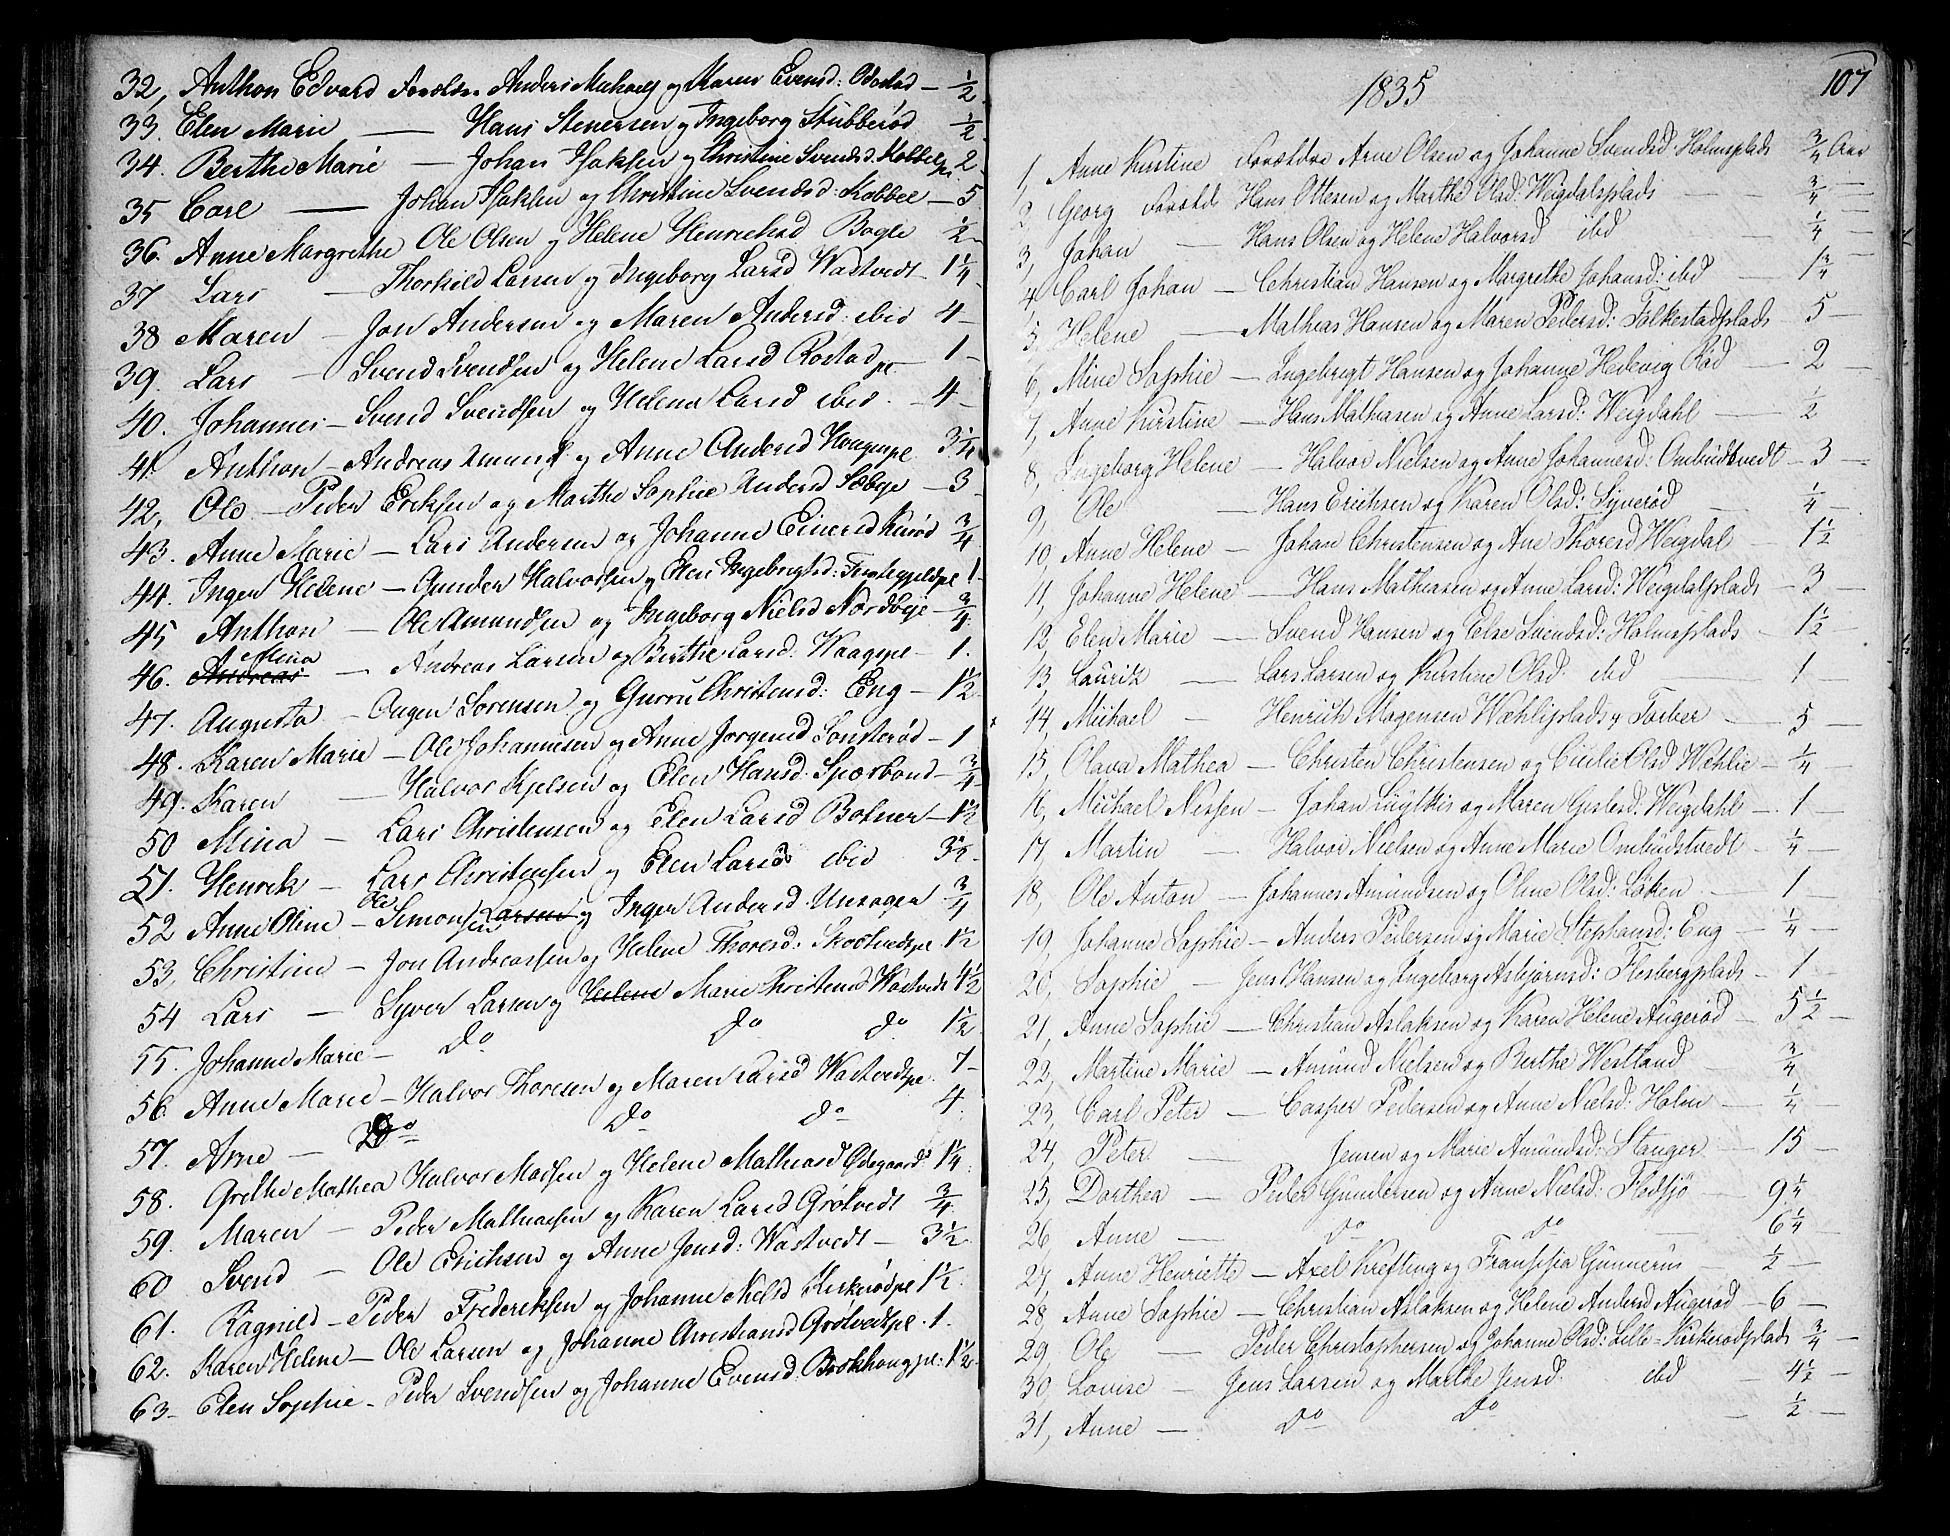 32, Anthon Edvard Forældre Anders og Maren Evensd: Odestad — ½
33. Elen Marie — Hans Stenersen og Ingeborg Stubberöd ½
34. Berthe Marie — Johan Isaksen og Christine Svendsd. Kobbel pl. 2
35 Carl — Johan Isaksen og Christine Svendsd: Kobbel — 5
36. Anne Margrethe Ole Olsen og Helene Henrichsd Bogle ½ —
37 Lars — Thorkild Larsen og Ingeborg Larsd Wastvedt — 1¼ —
38 Maren — Jon Andersen og Maren Andersd: ibid 4 —
39. Lars — Svend Svendsen og Helene Larsd Rostad pl — 1 —
40. Johannes — Svend Svendsen og Helena Larsd ibid. — 4 —
41. Anthon — Andreas Amunds. og Anne Andersd Haugspl 3½
42, Ole — Peder Eriksen og Marthe Sophie Andersd Sæbye — 3 —
43. Anne Marie — Lars Andersen og Johanne Einersd ¾
44. Inger Helene — Gunder Halvorsen og Elen Ingebrigtsd: 1 —
45 Anthon — Ole Amundsen og Ingeborg Nielsd Nordbye — ¾
46. Andreas Mina — Andreas Larsen og Berthe Larsd. Haagspl — 1.
47. Augusta — Augen Sörensen og Gurru Christensd: Eng — 1½
48. Karen Marie — Ole Johannesen og Anne Jörgensd Sönsteröd — 1
49. Karen — Halvor Kjelsen og Elen Hansd. Spærbond — ¾
50 Mina — Lars Christensen og Elen Larsd Bolner — 1½
51. Henrik — Lars Christensen og Elen Larsd ibid 3½ —
52 Anne Oline — Ole Simonsen Larsen og Inger Andersd. Unsager ¾
53, Christine — Jon Andreassen og Helene Thoresd: Skostvedtpl 1½
54 Lars — Syver Larsen og Helene Marie Christensd Wastvedt 4½
55. Johanne Marie — Do Do Do. 1½
56. Anne Marie — Halvor Thoresen og Maren Larsd Wastvedtpl. 7 —
57. Arne — Do Do Do — 4.
58. Grethe Mathea Halvor Madsen og Helene Mathiasd Ödegaard 1¼
59. Maren — Peder Mathiasen og Karen Larsd Grötvedt ¾
60 Svend — Ole Erichsen og Anne Jensd: Wastvedt — 3½
61. Ragnild — Peder Frederiksen og Johanne Nielsd Kirkerödpl 1½
62. Karen Helene — Ole Larsen og Johanne Christiansd Grötvedtpl. 1.
63 — Elen Sophie — Peder Svendsen og Johanne Evensd. Brekhougpl: 1½
107
1835
1, Anne Kirstine Forældre Arne Olsen og Johanne Svendsd. Holmsplads ¾ Aar
2, Georg Foræld Hans Ottesen og Marthe Olsd: Weigdalsplads — ¾ —
3, Johan — Hans Olsen og Helene Halvorsd ibd — ¼ —
4, Carl Johan — Christian Hansen og Margrethe Johansd: ibd — 1¾
5, Helene — Mathias Hansen og Maren Pedersd: Folkestadplads 5 —
6, Mine Sophie — Ingebrigt Hansen og Johanne Hedevig Röd — 2 —
7, Anne Kirstine — Hans Mathiasen og Anne Larsd: Weigdahl — ½
8, Ingeborg Helene — Halvor Nielsen og Anne Johannesd: Ombudstvedt — 3 —
9, Ole — Hans Erichsen og Karen Olsd: Syveröd — ¼ —
10, Anne Helene — Johan Christensen og Ane Thoresd Weigdal — 1½
11, Johanne Helene — Hans Mathiasen og Anne Larsd: Weigdalplads — 3 —
12, Elen Marie — Svend Hansen og Else Svendsd: Holmsplads — 1½ —
13, Lauritz — Lars Larsen og Kirstine Olsd. ibd 1
14, Michael — Henrich Mogensen Wæhliplads — 5 —
15, Olava Mathea — Christen Christensen og Cicilie Olsd Wæhlie — ¼ —
16, Michael Nissen — Johan og Maren Weigdahl — 1 —
17, Martin — Halvor Nielsen og Anne Marie Ombudstvedt — ¼ —
18, Ole Anton — Johannes Amundsen og Oline Olsd: Löken — 1 —
19, Johanne Sophie — Anders Pedersen og Marie Stephansd: Eng — ¼ —
20, Sophie — Jens Hansen og Ingeborg Asbjörnsd: Flesbergplads — 1 —
21, Anne Sophie — Christian Aslaksen og Karen Helene Augeröd — 5½ —
22, Martine Marie — Amund Nielsen og Berthe Westland — ¾
23, Carl Peter — Casper Pedersen og Anne Nielsd: Holm — ¼ —
24, Peter — Jensen og Marie Amundsd: Stanger — 15 —
25, Dorthea — Peder Gundersen og Anne Nielsd: Flodsjö — 9½ —
26 Anne — Do Do — 6¼ —
27, Anne Henriette — Axel Krefting og Gunnerus — ½ —
28, Anne Sophie — Christian Aslaksen og Helene Andersd Augeröd — 6 —
29, Ole — Peder Christophersen og Johanne Olsd: Lille-Kirkerödplads ¾ —
30, Lovise — Jens Larsen og Marthe Jensd. ibd — 4½ —
31, Anne — Do Do — ½ —